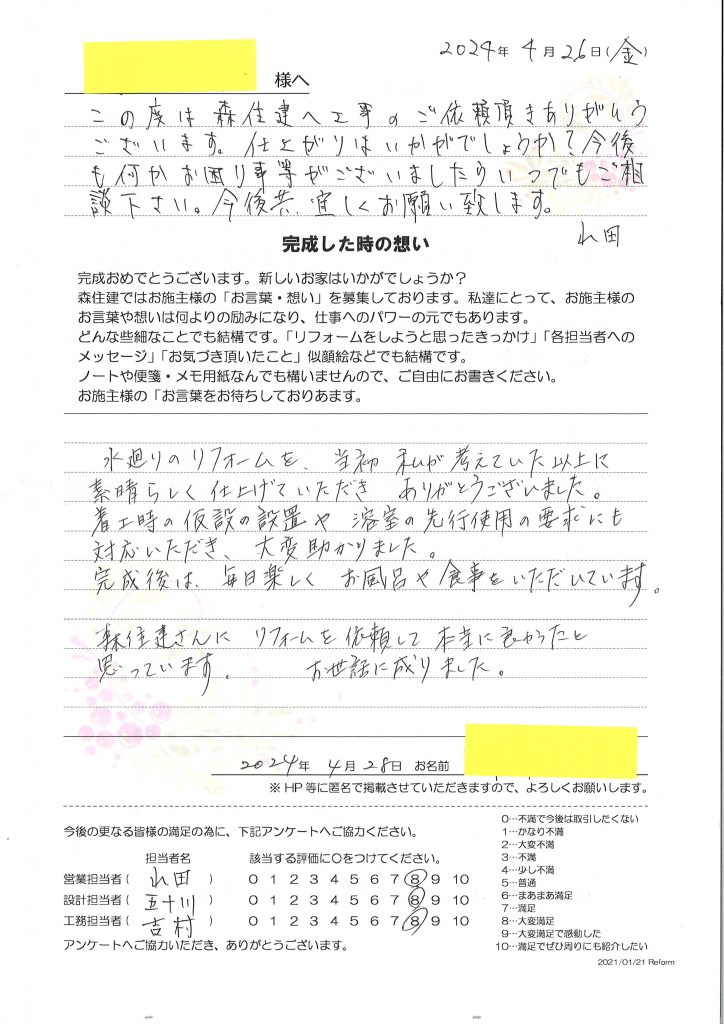 2024年 4月26日(金)
様へ
この度は森住建へ工事のご依頼頂きありがとう
ございます。仕上がりはいかがでしょうか?今後
も何かお困り事等がございましたらいつでもご相
談下さい。今後共、宜しくお願い致します。
完成した時の想い
完成おめでとうございます。新しいお家はいかがでしょうか?
森住建ではお施主様の「お言葉・想い」を募集しております。私達にとって、お施主様の
お言葉や想いは何よりの励みになり、仕事へのパワーの元でもあります。
どんな些細なことでも結構です。「リフォームをしようと思ったきっかけ」「各担当者への
メッセージ」「お気づき頂いたこと」似顔絵などでも結構です。
ノートや便箋・メモ用紙なんでも構いませんので、ご自由にお書きください。
お施主様の「お言葉をお待ちしておりあます。
水廻りのリフォームを、当初 私が考えていた以上に
素晴らしく仕上げていただき ありがとうございました。
着工時の仮設の設置や 浴室の先行使用の要求にも
対応いただき、大変助かりました。
完成後は、毎日楽しく お風呂や食事をいただいています。
森住建さんに リフォームを依頼して 本当に良かったと
思っています。 お世話に成りました。
2024年 4月28日 お名前
※HP等に匿名で掲載させていただきますので、よろしくお願いします。
今後の更なる皆様の満足の為に、下記アンケートへご協力ください。
担当者名 該当する評価に○をつけてください。
営業担当者( ) 0 1 2 3 4 5 6 7 8 9 10
設計担当者( 五十川 ) 0 1 2 3 4 5 6 7 8 9 10
工務担当者( 吉村 ) 0 1 2 3 4 5 6 7 8 9 10
アンケートへご協力いただき、ありがとうございます。
0…不満で今後は取引したくない
1…かなり不満
2…大変不満
3…不満
4…少し不満
5…普通
6…まあまあ満足
7…満足
8…大変満足
9…大変満足で感動した
10…満足でぜひ周りにも紹介したい
2021/01/21 Reform